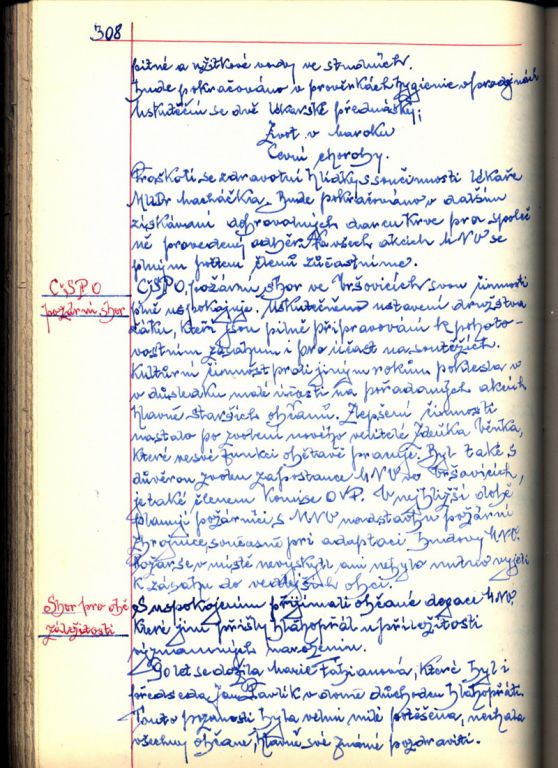 308
pitné a užitkové vody ve studních.
Bude pokračováno v prověrkách hygienie v prodejnách
Uskuteční se dvě lékařské přednášky:
Život v baroku
Cévní choroby.
Proškolí se zdravotní hlídky s součinnosti lékaře
MUDr Macháčka. Bude pokračováno v dalším
získávání dobrovolných dárců krve pro společ
ně provedený odběr. Na všech akcích MNV se
plným počtem členů zúčastníme.
ČSPO
požární sbor
ČSPO, požární sbor ve Vršovicích svou činností
plně uspokojuje. Uskutečněno ustavení družstva
žáků, kteří jsou pilně připravováni k pohoto-
vostním zásahům i pro účast na soutěžích.
Kulturní činnost proti jiným rokům poklesla v
v důsledku malé účasti na pořádaných akcích
hlavně starších občanů. Zlepšení činnosti
nastalo po zvolení nového velitele Zdeňka
které ve své funkci obětavě pracuje. Byl také s
důvěrou zvolen za poslance MNV ve Vršovicích,
je také členem Komise OVP. V nejbližší době
plánují požárníci s MNV novostavbu požární
zbrojnice, současně při adaptaci budovy MNV.
Požár se v místě nevyskytl, ani nebylo nutno vyjeti
k zásahu do vedlejších obcí.
Sbor pro obč
záležitosti
S uspokojením přijímali občané
které jim přišly blahopřát u příležitosti
významných narozenin.
90 let se dožila Marie Fabianová, které byl i
předseda Jan Pavlík v domě důchodců blahopřáti.
Touto pozorností byla velmi mile potěšena, nechala
všechny občané, hlavně své známé pozdraviti.